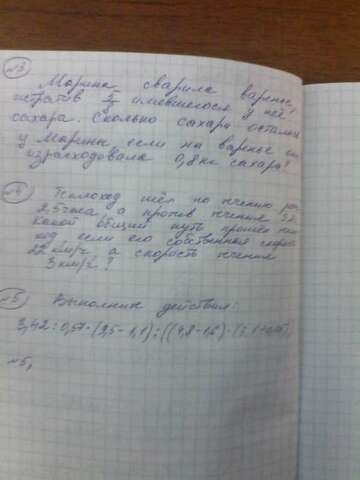 №3
Марина сварила варенье,
истратив 2/3 имевшегося у неё
сахара. Сколько сахара осталось
у Марины если на варенье она
израсходовала 0,8 кг сахара?
№4 Теплоход шёл по течению реки
2,5 часа а против течения
Какой общий путь прошёл тепло
ход если его собственная скорость
22 км/ч а скорость течения
3 км/ч?
№5 Выполник действия:
3,42:0,57·(9,5-1,1):((4,8-1,6)·
№5,